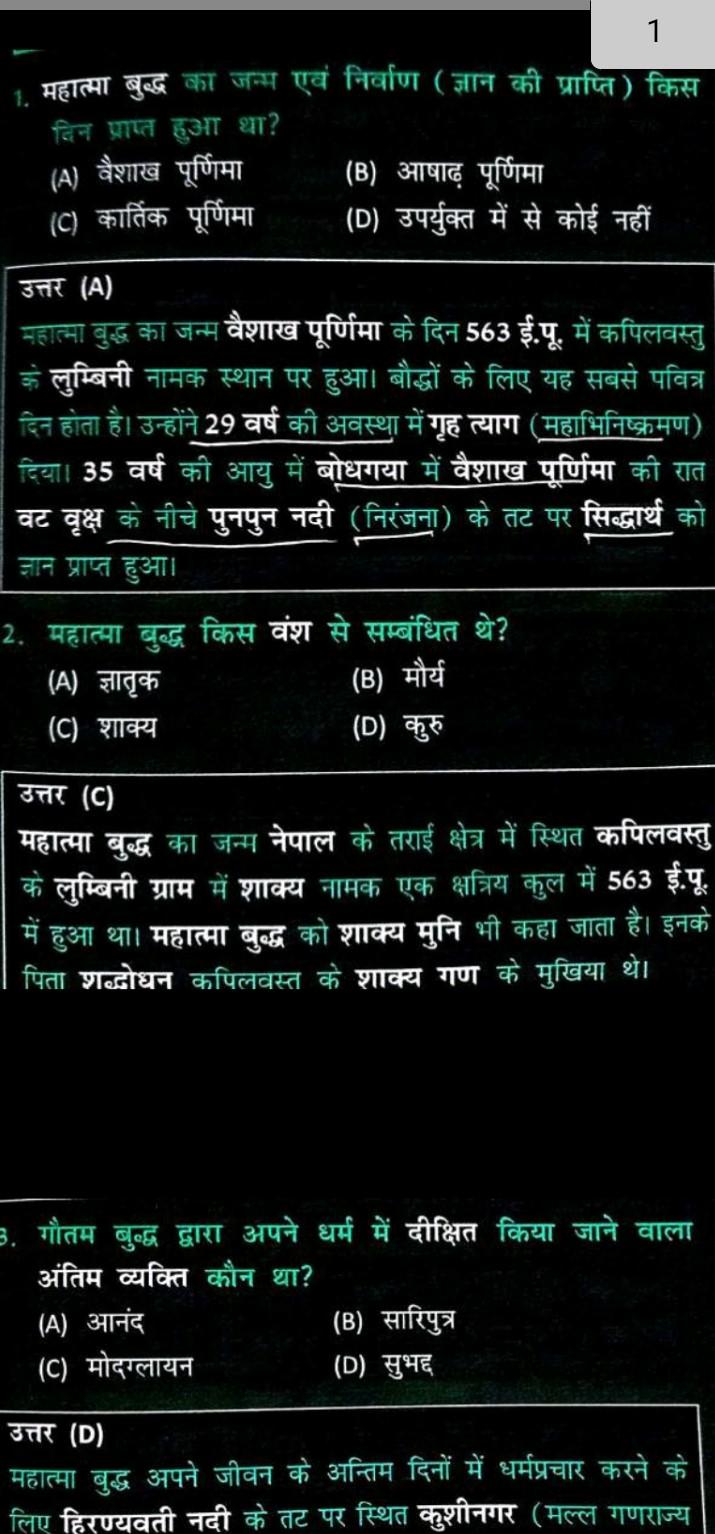 1
1. महात्मा बुद्ध का जन्म एवं निर्वाण ( ज्ञान की प्राप्ति ) किस
दिन प्राप्त हुआ था?
(A) वैशाख पूर्णिमा (B) आषाढ़ पूर्णिमा
(C) कार्तिक पूर्णिमा (D) उपर्युक्त में से कोई नहीं
उत्तर (A)
महात्मा बुद्ध का जन्म वैशाख पूर्णिमा के दिन 563 ई.पू. में कपिलवस्तु
के लुम्बिनी नामक स्थान पर हुआ। बौद्धों के लिए यह सबसे पवित्र
दिन होता है। उन्होंने 29 वर्ष की अवस्था में गृह त्याग (महाभिनिष्क्रमण)
दिया। 35 वर्ष की आयु में बोधगया में वैशाख पूर्णिमा की रात
वट वृक्ष के नीचे पुनपुन नदी (निरंजना) के तट पर सिद्धार्थ को
ज्ञान प्राप्त हुआ।
2. महात्मा बुद्ध किस वंश से सम्बंधित थे?
(A) ज्ञातृक (B) मौर्य
(C) शाक्य (D) कुरु
उत्तर (C)
महात्मा बुद्ध का जन्म नेपाल के तराई क्षेत्र में स्थित कपिलवस्तु
के लुम्बिनी ग्राम में शाक्य नामक एक क्षत्रिय कुल में 563 ई.पू.
में हुआ था। महात्मा बुद्ध को शाक्य मुनि भी कहा जाता है। इनके
पिता शुद्धोधन कपिलवस्तु के शाक्य गण के मुखिया थे।
3. गौतम बुद्ध द्वारा अपने धर्म में दीक्षित किया जाने वाला
अंतिम व्यक्ति कौन था?
(A) आनंद (B) सारिपुत्र
(C) मोदग्लायन (D) सुभद्द
उत्तर (D)
महात्मा बुद्ध अपने जीवन के अन्तिम दिनों में धर्मप्रचार करने के
लिए हिरण्यवती नदी के तट पर स्थित कुशीनगर (मल्ल गणराज्य